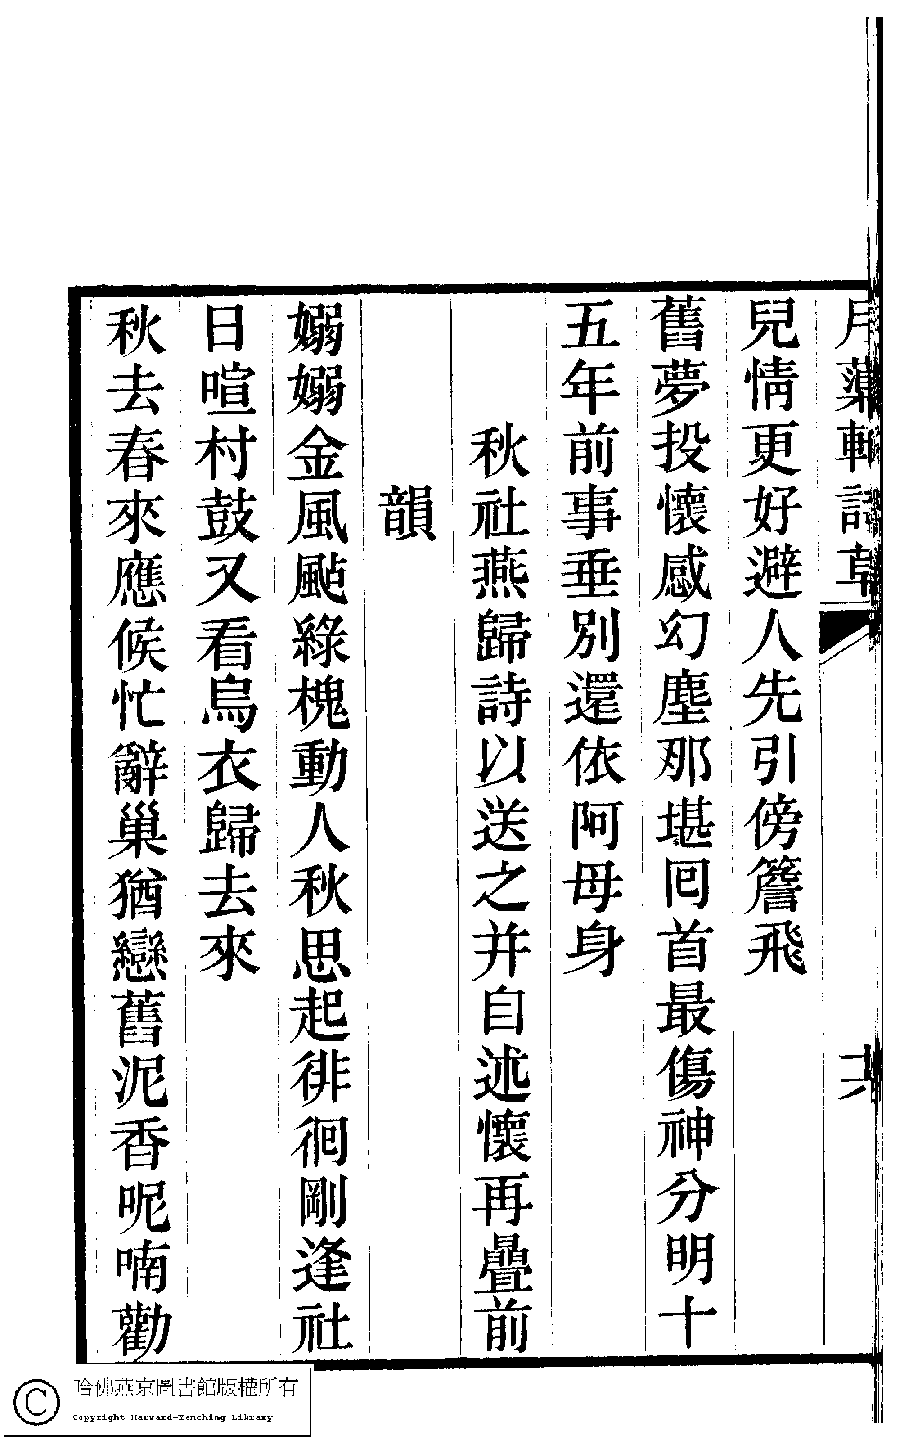 月蕖軒詩草
兒情更好避人先引傍簷飛
舊夢投懷感幻塵那堪囘首最傷神分明十
五年前事垂別還依阿母身
秋社燕歸詩以送之并自述懷再疊前
韻
嫋嫋金風颭綠槐動人秋思起徘徊剛逢社
日喧村鼓又看烏衣歸去來
秋去春來應候忙辭巢猶戀舊泥香呢喃勸
哈佛燕京圖書館版權所有
Copyright Harvard-Yenching Library